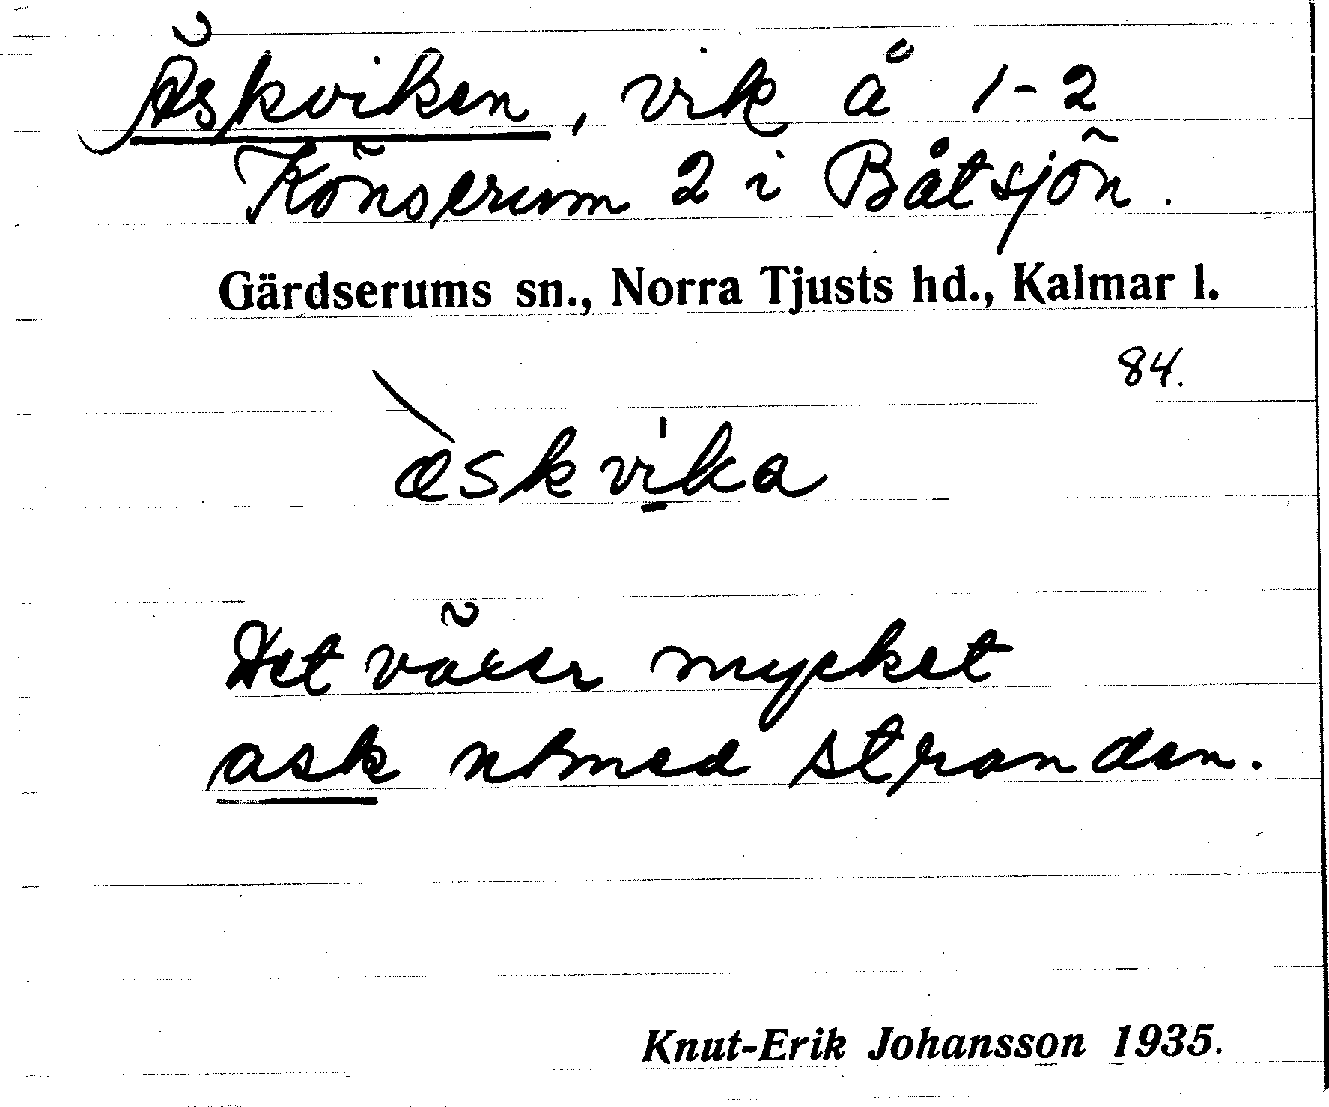 Äskviken, vik å 1-2
Könserum 2 i Båtsjön.
Gärdserums sn., Norra Tjusts hd., Kalmar l.
84.
àskvika
Det växer mycket
ask utmed stranden.
Knut-Erik Johansson 1935.